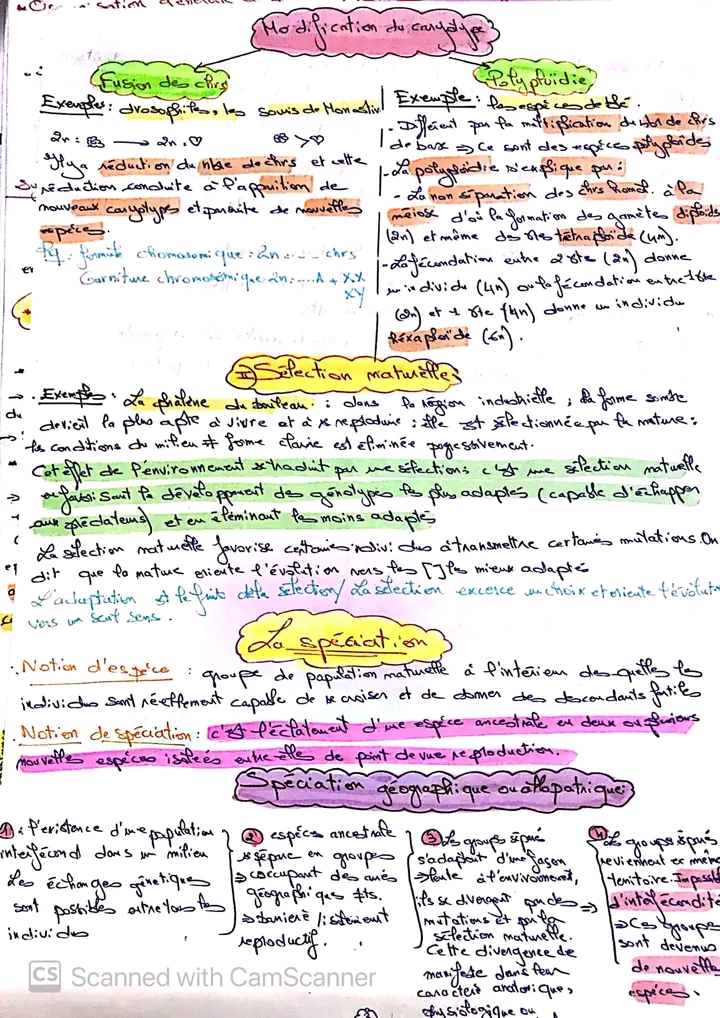 Modification du caryotype
Fusion des chrs
Exemples: drosophiles, les souris de
2n: → 2n,
Il y a réduction du nbre de chrs et cette
réduction conduite à l'apparition de
nouveaux caryotypes et par suite de nouvelles
espèces.
Rq: formule chromosomique: 2n: ... chrs
Garniture chromosomique 2n: ...A + XX
XY
Polyploïdie
Exemple: les espèces de blé.
- Différent par la multiplication du nbr de chrs
de base ⇒ Ce sont des espèces polyploïdes
- La polyploïdie s'explique par:
- La non séparation des chrs homol. à la
méiose d'où la formation des gamètes diploïdes
(2n) et même des tétraploïde (4n).
- La fécondation entre 2 (2n) donne
un individu (4n) ou la fécondation entre 1
(2n) et 1 (4n) donne un individu
héxaploïde (6n).
II) Sélection naturelle:
. Exemple: La phalène du bouleau: dans la région industrielle; la forme sombre
devient la plus apte à vivre et à se reproduire: elle est sélectionnée par la nature:
les conditions du milieu ≠ forme claire est éliminée progessivement.
Cet effet de l'environnement se traduit par une sélection: c'est une sélection naturelle
en favorisant le développement des génotypes les plus adaptés (capable d'échapper
aux prédateurs) et en éliminant les moins adaptés
La sélection naturelle favorise certains individus à transmettre certaines mutations. On
dit que la nature oriente l'évolution vers les [] les mieux adaptés
L'adaptation est le fruit de la sélection / La sélection exerce un choix et oriente l'évolut
vers un seul sens.
La spéciation
. Notion d'espèce: groupe de population naturelle à l'intérieur des quelles les
individus sont réellement capable de se croiser et de donner des descendants fertiles
. Notion de spéciation: c'est l'éclatement d'une espèce ancestrale en deux ou plusieurs
nouvelles espèces isolées entre elles de point de vue reproduction.
Spéciation géographique ou allopatrique:
1: l'existence d'une population
interfécond dans un milieu
Les échanges génétiques
sont possibles entre tous les
individus
2 espèces ancestrale
se sépare en groupes
⇒ occupant des aires
géographiques ≠ts.
⇒ barrière / isolement
reproductif.
3 Les groupes séparés
s'adaptent d'une façon
⇒ à l'environnement,
ils se divergent par des
mutations et par la
sélection naturelle.
Cette divergence de
manifeste dans leur
caractère anatomique,
physiologique ou
⇒
4 Les groupes séparés
reviennent ce même
territoire. Impossibl
d'interfécondité
⇒ Ces groupes
sont devenus
de nouvelles
espèces.
CS Scanned with CamScanner